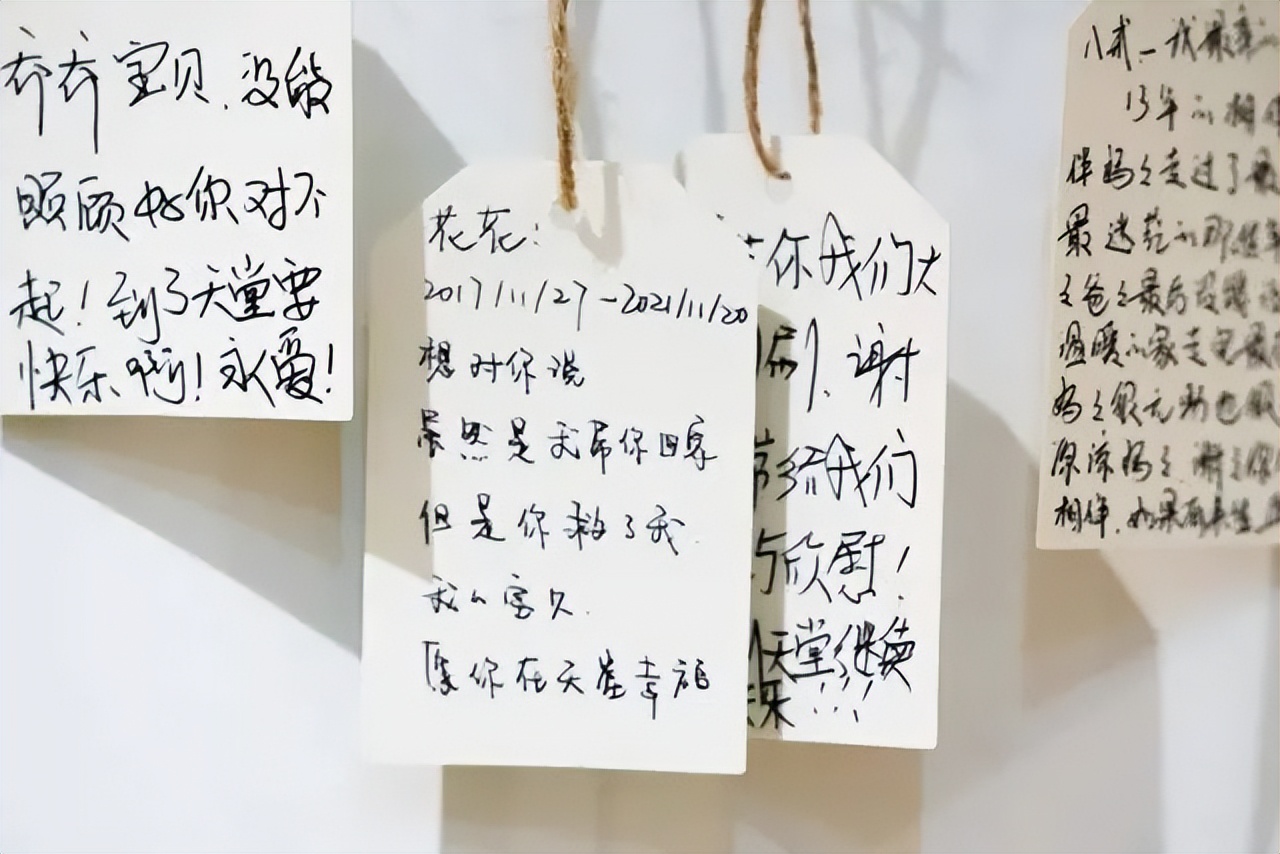 乔乔宝贝.没能
照顾好你对不
起！到了天堂要
快乐啊！永爱！
花花：
2017/11/27-2021/11/20
想对你说
虽然是我带你回家
但是你救了我.
我的宝贝.
愿你在天堂幸福
你我们大
谢
给我们
与欣慰！
天堂继续
！！！
八戒、我最
13年的相
伴妈々走过了最
最迷茫的那些年
々爸々最后没
温暖的家
妈々很
原谅妈々谢々你
相伴.如果有来生